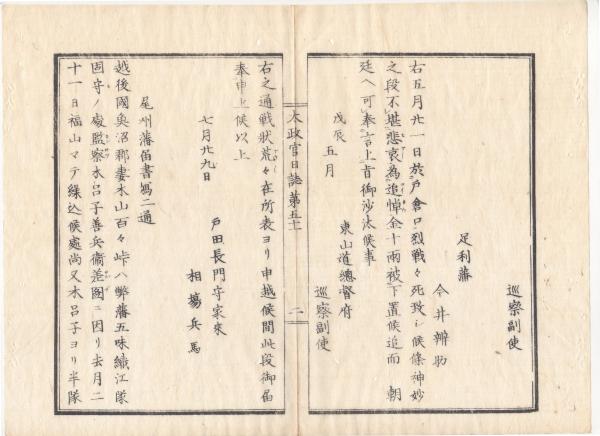 巡察副使
足利藩
今井辨助
右五月廿一日於戸倉口烈戦々死致シ候條神妙
之段不堪悲哀為追悼金十兩被下置候追而 朝
廷ヘ可奉言上旨御沙汰候事
戊辰五月
東山道總督府
巡察副使
太政官日誌第五十
二
右之通戦状荒々在所表ヨリ申越候間此段御届
奉申上候以上
七月廿九日
戸田長門守家来
相場兵馬
尾州藩届書寫二通
越後國魚沼郡妻木山百々峠ハ弊藩五味織江隊
固守ノ處監察水呂子善兵衛差圖ニ因リ去月二
十一日福山マテ繰込候處尚又水呂子ヨリ半隊